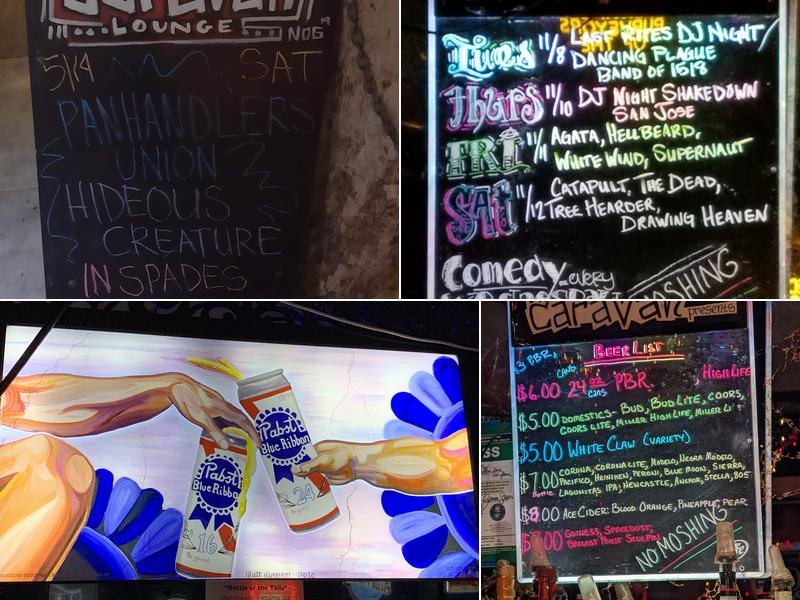 LOUNGE
5/14 SAT
PANHANDLERS
UNION
HIDEOUS
CREATURE
IN SPADES
Tues 11/8 LAST RITES DJ NIGHT/
DANCING PLAGUE
BAND OF 1518
Thurs 11/10 DJ NIGHT SHAKEDOWN
SAN JOSE
FRI 11/11 AGATA, HELLBEARD,
WHITE WIND, SUPERNAUT
Sat 11/12 CATAPULT, THE DEAD,
TREE HEARDER,
DRAWING HEAVEN
Comedy EVERY
MOSHING
Pabst
Blue Ribbon
24
Pabst
Blue Ribbo
16
"Battle of the Talls"
caravan
presents
BEER LIST
$3 PBR,
$6.00 24 oz PBR HIGH LIFE
CANS
$5.00 DOMESTICS - BUD, BUD LITE, COORS,
COORS LITE, MILLER HIGH LIFE, MILLER L T
$5.00 WHITE CLAW (VARIETY)
$7.00 CORONA, CORONA LITE, MODELO, NEGRA MODELO,
Bottle PACIFICO, HEINIKEN, PERONI, BLUE MOON, SIERRA,
LAGUNITAS IPA, NEWCASTLE, ANCHOR, STELLA, 805
$8.00 ACE CIDER: BLOOD ORANGE, PINEAPPLE, PEAR
GUINESS, SPACEDUST,
BALLAST POINT SCULPIN
NO MOSHING